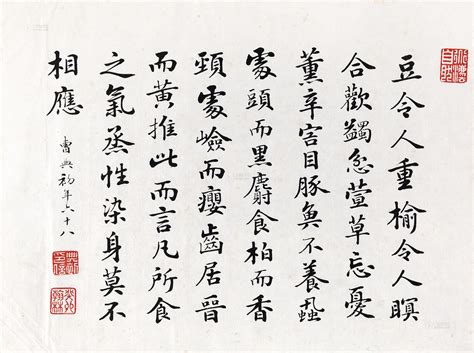 豆令人重榆令人瞑
合歡蠲忿萱草忘憂
薰辛害目豚魚不養蝨
處頭而黑麝食柏而香
頸處嶮而癭齒居晉
而黃推此而言凡所食
之氣蒸性染身莫不
相應
曹典初年六十八
癸卯翰林